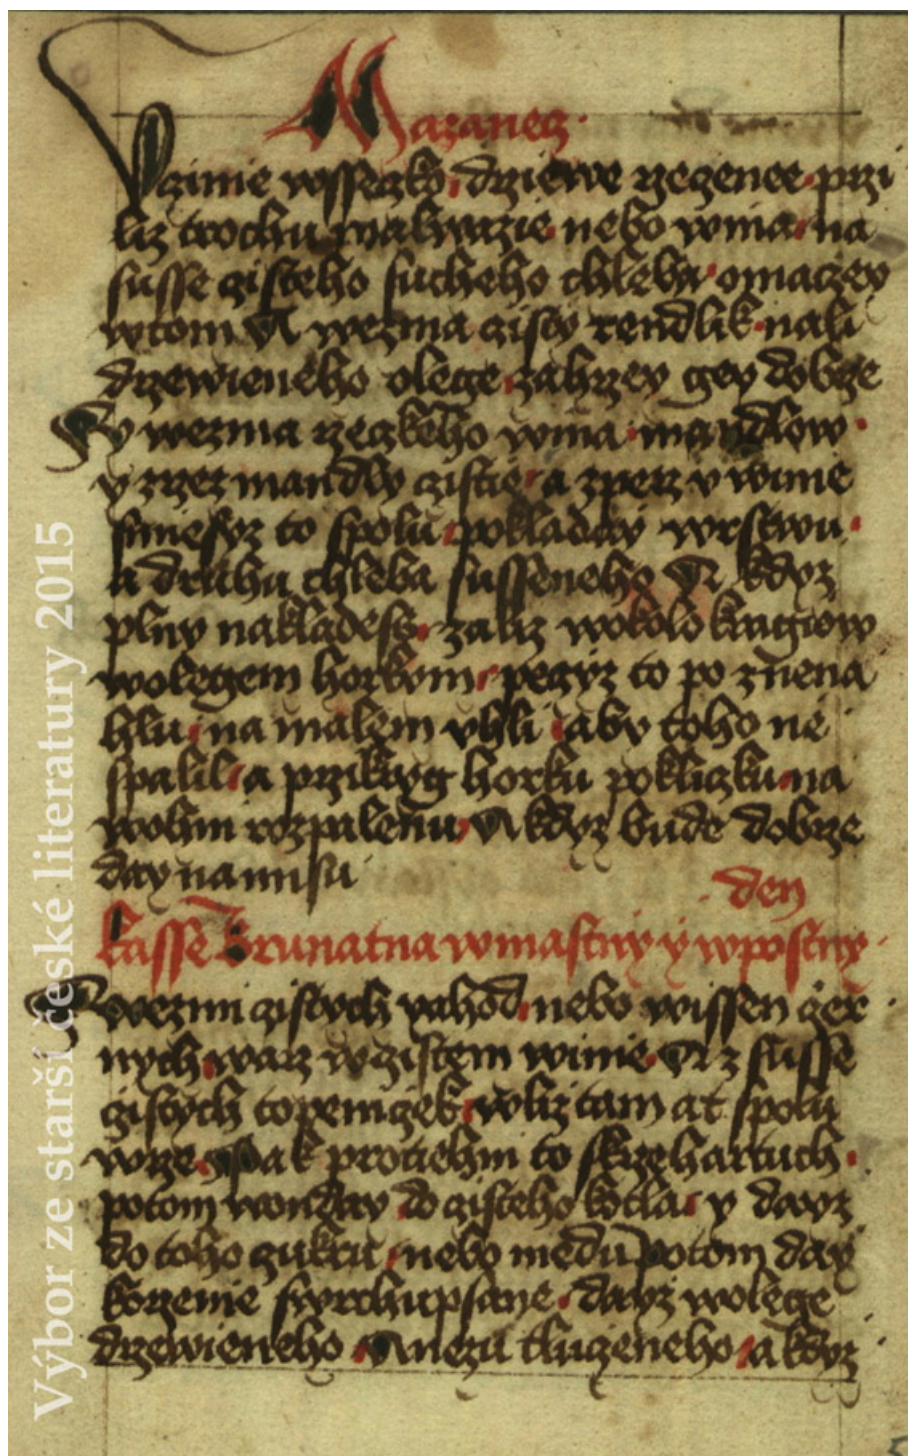 Mazanecz
Vczinie wssezko drziewe rzeczenee przi
liz trochu malwazie nebo wina na
susse czisteho sucheho chleba omaczey
wtom A wezma czisty rendlik nali
drzewieneho olege zahrzey gey dobrze
Ty wezma rzeczkeho wina mandlow
y zrzez mandly czistie a zperz v winie
smiesyz to spolu pokladay wrstwu
a druhu chleba susseneho A kdyz
plny nakladess zaliz wokolo kragiow
wolegem horkym peczyz to po znena
hlu na malem vhli aby toho ne
spalil a przikryg horku pokliczku na
wohni rozpalenu A kdyz bude dobrze
day na misu
den
Kasse Brunatna w mastny y w postny
Wezmi czistych yahod nebo wissen czer
nych warz w czistem winie A z susse
czistych topeniczek wliz tam at spolu
wrze Pak protiehni to skrze hartuch
potom wonday do czisteho kotla y dayz
do toho czukru nebo medu potom day
korzenie swrchupsane dayz wolege
drzewieneho A nezu tluczeneho a kdyz
Výbor ze starší české literatury 2015